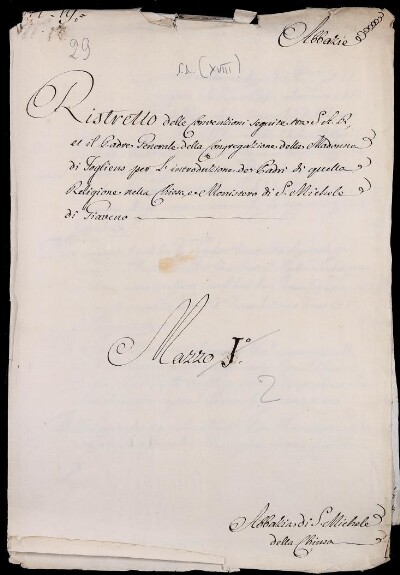 Abbazie
29
s.d. (XVIII)
Ristretto delle Convenzioni seguite tra S. A. R.,
et il Padre Generale della Congregazione della Madonna
di Foglieno per L'introduzione de Padri di quella
Religione nella Chiesa, e Monistero di S. Michele
di Giaveno
Mazzo I.°
2
Abbazia di S. Michele
della Chiusa